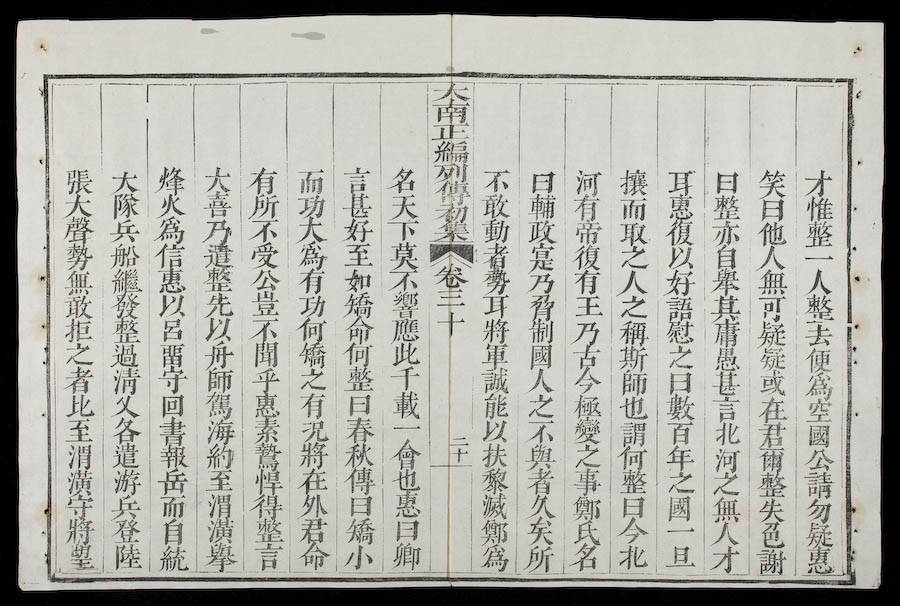 才惟整一人整去便爲空國公請勿疑惠
笑曰他人無可疑疑或在君爾整失色謝
曰整亦自舉其庸愚甚言北河之無人才
耳惠復以好語慰之曰數百年之國一旦
攘而取之人之稱斯師也謂何整曰今北
河有帝復有王乃古今極變之事鄭氏名
曰輔政寔乃脅制國人之不與者久矣所
不敢動者勢耳將軍誠能以扶黎滅鄭爲
大南正編列傳初集
卷三十
二十
名天下莫不響應此千載一會也惠曰卿
言甚好至如矯命何整曰春秋傳曰矯小
而功大爲有功何矯之有况將在外君命
有所不受公豈不聞乎惠素鷙悍得整言
大喜乃遣整先以舟師駕海約至渭潢擧
烽火爲信惠以呂畱守回書報岳而自統
大隊兵船繼發整過淸乂各遣游兵登陸
張大聲勢無敢拒之者比至渭潢守將望